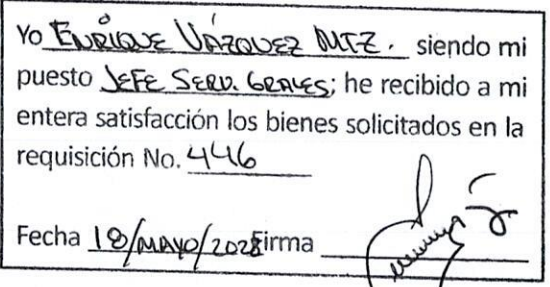 Yo ENRIQUE VÁZQUEZ MTZ. siendo mi
puesto JEFE SERV. GRALES; he recibido a mi
entera satisfacción los bienes solicitados en la
requisición No. 446
Fecha 18/MAYO/2028 Firma